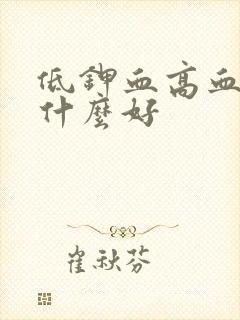 低鉀血高血
什麼好
崔秋芬